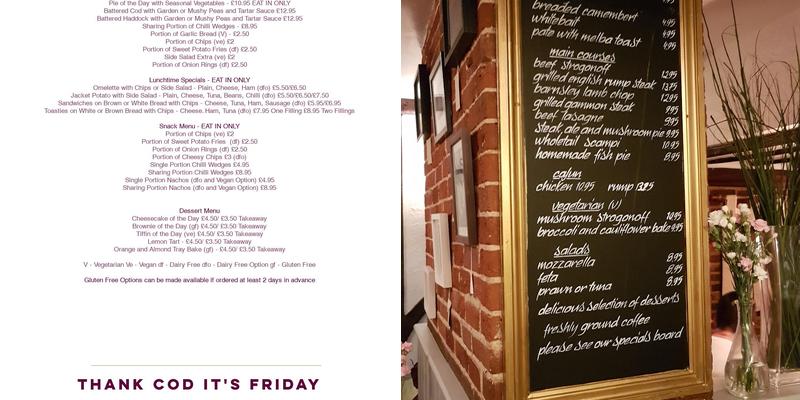 Pie of the Day with Seasonal Vegetables - £10.95 EAT IN ONLY
Battered Cod with Garden or Mushy Peas and Tartar Sauce £12.95
Battered Haddock with Garden or Mushy Peas and Tartar Sauce £12.95
Sharing Portion of Chilli Wedges - £8.95
Portion of Garlic Bread (V) - £2.50
Portion of Chips (ve) £2
Portion of Sweet Potato Fries (df) £2.50
Side Salad Extra (ve) £2
Portion of Onion Rings (df) £2.50
Lunchtime Specials - EAT IN ONLY
Omelette with Chips or Side Salad - Plain, Cheese, Ham (dfo) £5.50/£6.50
Jacket Potato with Side Salad - Plain, Cheese, Tuna, Beans, Chilli (dfo) £5.50/£6.50/£7.50
Sandwiches on Brown or White Bread with Chips - Cheese, Tuna, Ham, Sausage (dfo) £5.95/£6.95
Toasties on White or Brown Bread with Chips - Cheese, Ham, Tuna (dfo) £7.95 One Filling £8.95 Two Fillings
Snack Menu - EAT IN ONLY
Portion of Chips (ve) £2
Portion of Sweet Potato Fries (df) £2.50
Portion of Onion Rings (df) £2.50
Portion of Cheesy Chips £3 (dfo)
Single Portion Chilli Wedges £4.95
Sharing Portion Chilli Wedges £8.95
Single Portion Nachos (dfo and Vegan Option) £4.95
Sharing Portion Nachos (dfo and Vegan Option) £8.95
Dessert Menu
Cheesecake of the Day £4.50/ £3.50 Takeaway
Brownie of the Day (gf) £4.50/ £3.50 Takeaway
Tiffin of the Day (ve) £4.50/ £3.50 Takeaway
Lemon Tart - £4.50/ £3.50 Takeaway
Orange and Almond Tray Bake (gf) - £4.50/ £3.50 Takeaway
V - Vegetarian Ve - Vegan df - Dairy Free dfo - Dairy Free Option gf - Gluten Free
Gluten Free Options can be made available if ordered at least 2 days in advance
THANK COD IT'S FRIDAY
breaded camembert
whitebait 4.95
pate with melba toast 4.95
main courses
beef stroganoff 12.95
grilled english rump steak 13.75
barnsley lamb chop 12.95
grilled gammon steak 9.95
beef lasagne 9.95
steak, ale and mushroom pie 9.95
wholetail scampi 10.95
homemade fish pie 8.95
cajun
chicken 10.95 rump
vegetarian (v)
mushroom stroganoff 10.95
broccoli and cauliflower bake 9.95
salads
mozzarella 8.95
feta 8.95
prawn or tuna 8.95
delicious selection of desserts
freshly ground coffee
please see our specials board